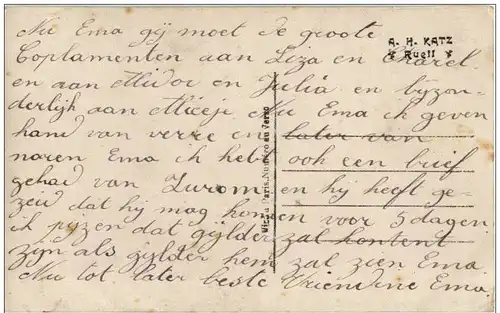 Nu Ema gij moet de groote
Coplamenten aan Liza en Karel
en aan Midor en Julia en byzon-
derlijk aan Nu Ema ik geven
hand van verre en later van
naren Ema ik hebt ook een brief
gehad van en hij heeft ge-
zeid dat hij mag komen voor 5 dagen
ik pijzen dat gijlder zal kontent
zijn als gijlder hem zal zien Ema
Nu tot later beste Vriendine Ema
A. H. KATZ
* Rueil *
Paris. Numéro au Verso